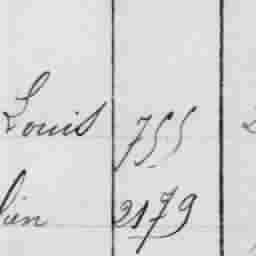 Louis 755
lien 2179